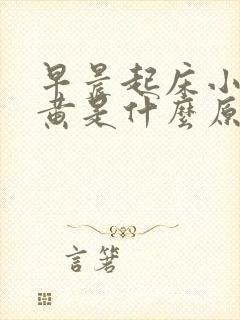 早晨起床小
黄是什麼原
言箸